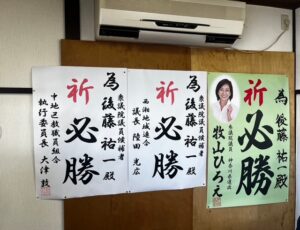 為 後藤祐一殿
祈
必勝
参議院議員 神奈川県選出
牧山ひろえ
衆議院議員候補者
為 後藤祐一殿
祈
必勝
西湘地域連合
議長 陸田 光広
衆議院議員候補者
為 後藤祐一殿
祈
必勝
中地区教職員組合
執行委員長 大津